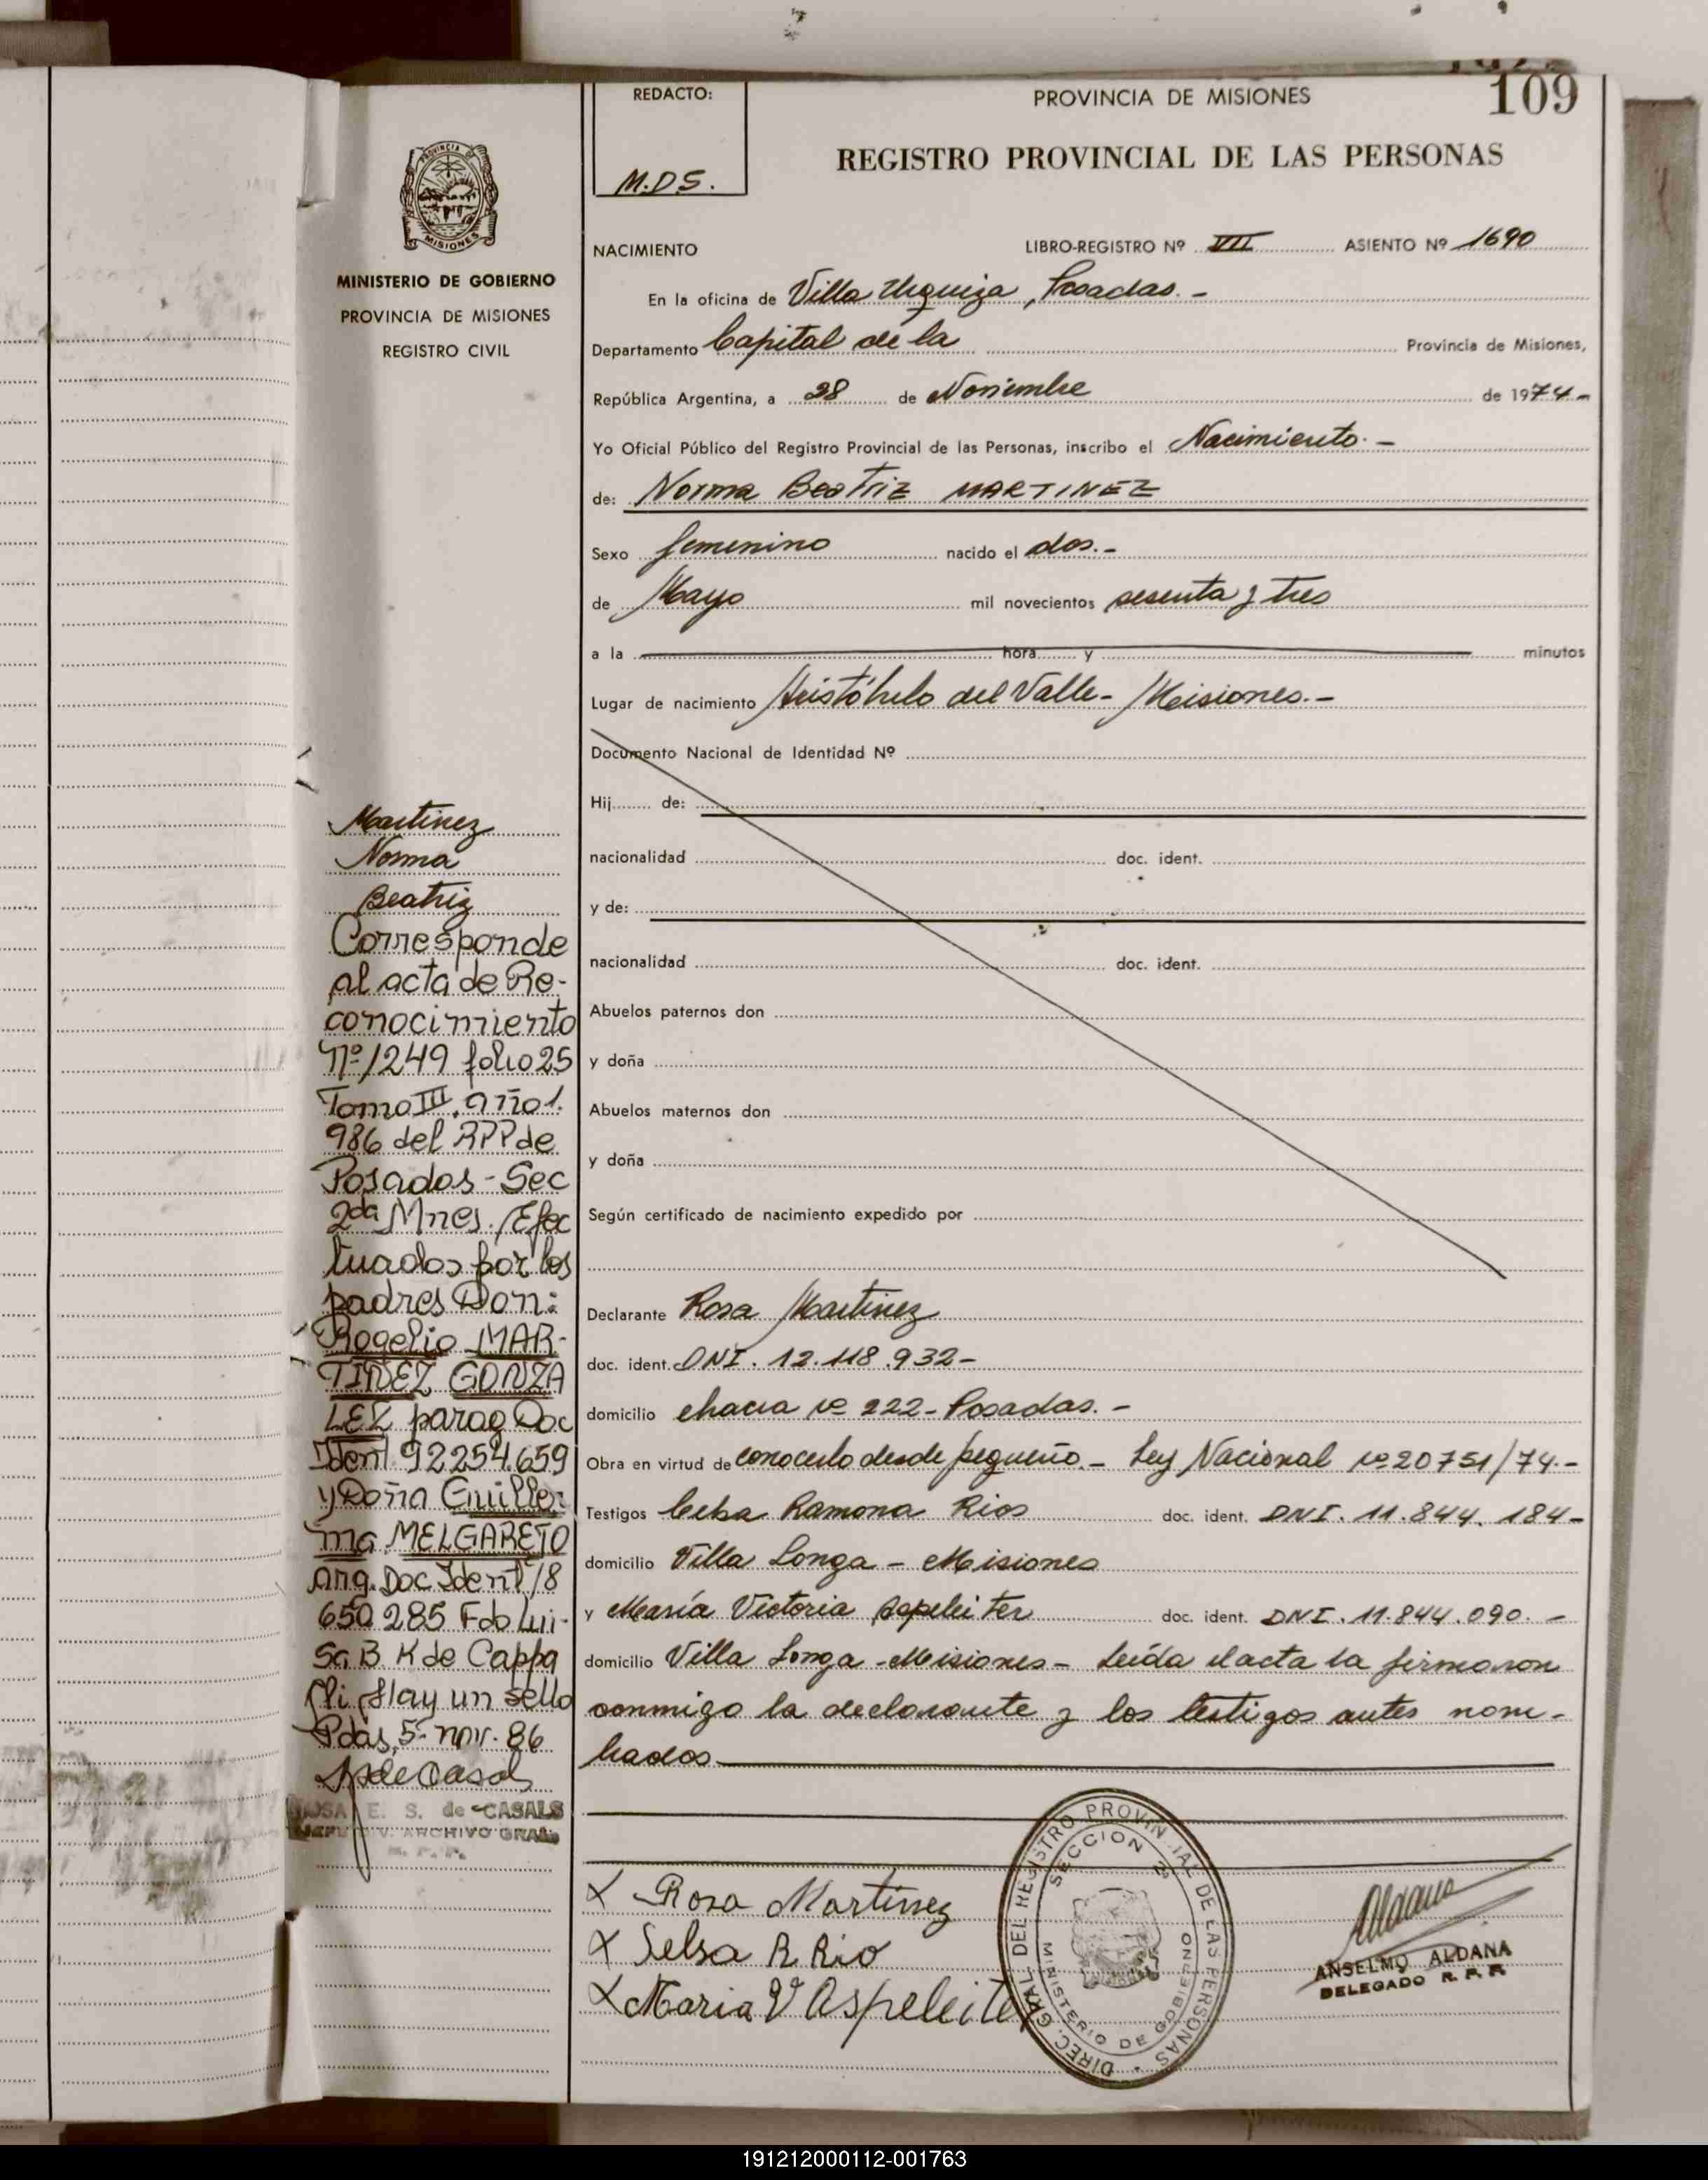 109
REDACTO:
M.D.S.
PROVINCIA DE MISIONES
REGISTRO PROVINCIAL DE LAS PERSONAS
PROVINCIA DE
MISIONES
MINISTERIO DE GOBIERNO
PROVINCIA DE MISIONES
REGISTRO CIVIL
Martinez
Norma
Beatriz
Corresponde
al acta de Re-
conocimiento
Nº 1249 folio 25
Tomo III. año 1.
986 del RPP de
Posadas - Sec
2da Mnes. Efec
tuados por los
padres Don:
Rogelio MAR-
TINEZ GONZA
LEZ parag Doc
Ident 92254.659
y Doña Guille:
ma MELGAREJO
arg. Doc Ident 18
650 285 Fdo Lui-
sa B K de Cappa
Hay un sello
Pdas, 5- nov. 86
ROSA E. S. de CASALS
JEFE DIV. ARCHIVO GRAL
R. P. P.
NACIMIENTO LIBRO-REGISTRO Nº VII ASIENTO Nº 1690
En la oficina de Villa Urquiza, Posadas. -
Departamento Capital de la Provincia de Misiones,
República Argentina, a 28 de Noviembre de 1974-
Yo Oficial Público del Registro Provincial de las Personas, inscribo el Nacimiento. -
de: Norma Beatriz MARTINEZ
Sexo femenino nacido el dos. -
de Mayo mil novecientos sesenta y tres
a la hora y minutos
Lugar de nacimiento Aristóbulo del Valle - Misiones. -
Documento Nacional de Identidad Nº
Hij de:
nacionalidad doc. ident.
y de:
nacionalidad doc. ident.
Abuelos paternos don
y doña
Abuelos maternos don
y doña
Según certificado de nacimiento expedido por
Declarante Rosa Martinez
doc. ident. DNI. 12.118.932-
domicilio chacra nº 222 - Posadas. -
Obra en virtud de conocerlo desde pequeño. - Ley Nacional nº 20751/74. -
Testigos Celsa Ramona Rios doc. ident. DNI. 11.844.184-
domicilio Villa Longa - Misiones
y María Victoria doc. ident. DNI. 11.844.090. -
domicilio Villa Longa - Misiones - Leída el acta la firmaron
conmigo la declarante y los testigos antes nom-
brados
X Rosa Martinez
X Selsa R Rio
X Maria Vª Aspeleiter
DIREC. GRAL. DEL REGISTRO PROVINCIAL DE LAS PERSONAS
SECCION 2ª
MINISTERIO DE GOBIERNO
Aldana
ANSELMO ALDANA
DELEGADO R. P. P.
191212000112-001763